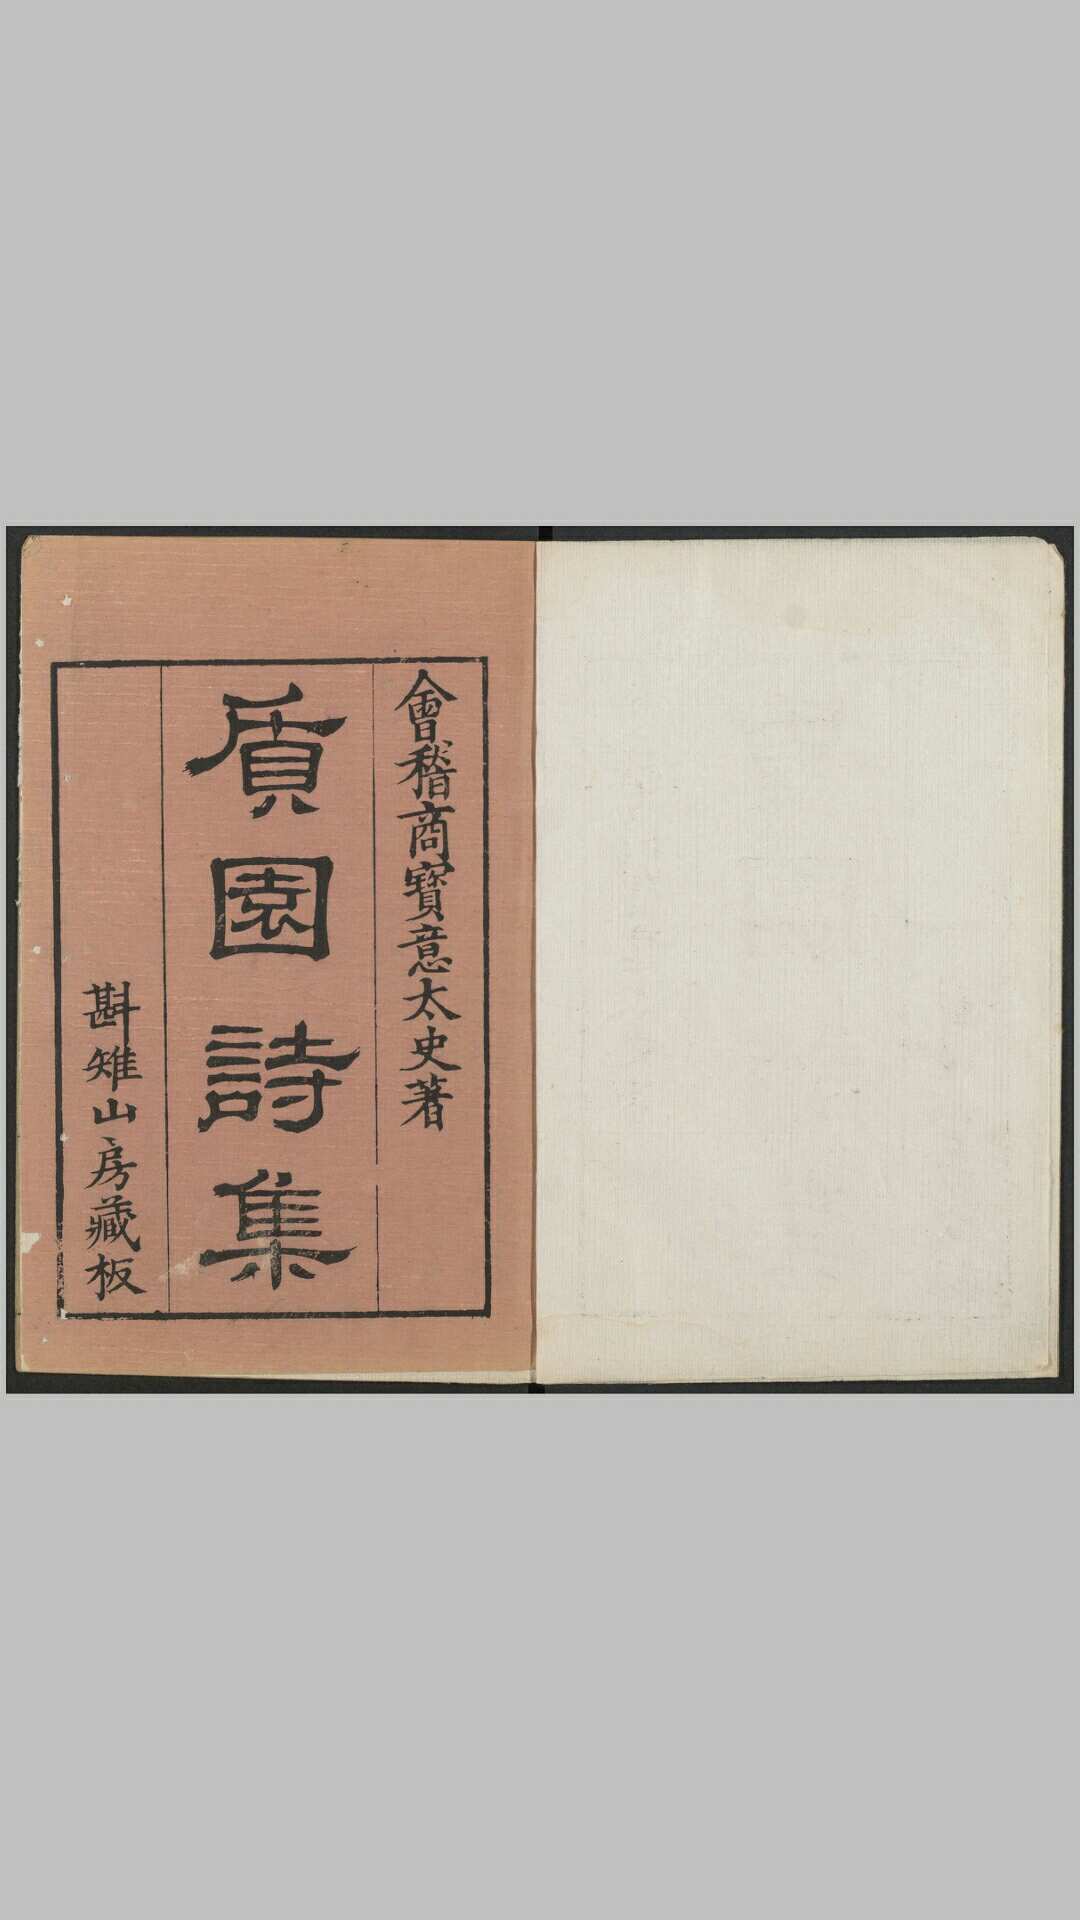 會稽商寶意太史著
質園詩集
斟雉山房藏板